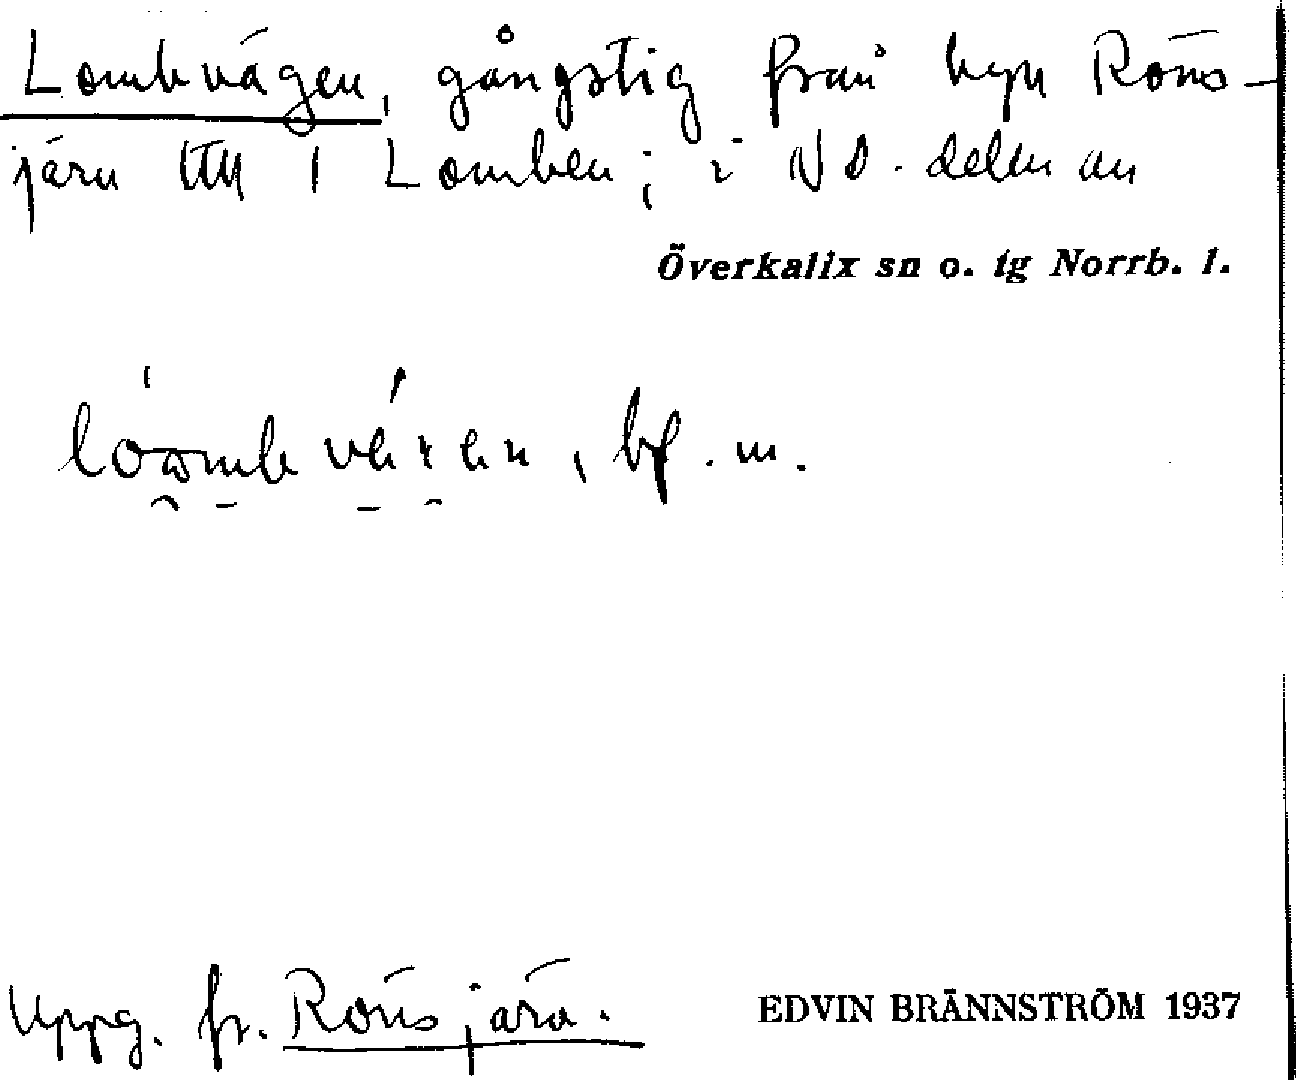 Lombvägen, gångstig från byn Röns-
järn till Lomben; i NO. delen av
Överkalix sn o. tg Norrb. l.
bf. m.
Uppg. fr. Rönsjärn.
EDVIN BRÄNNSTRÖM 1937